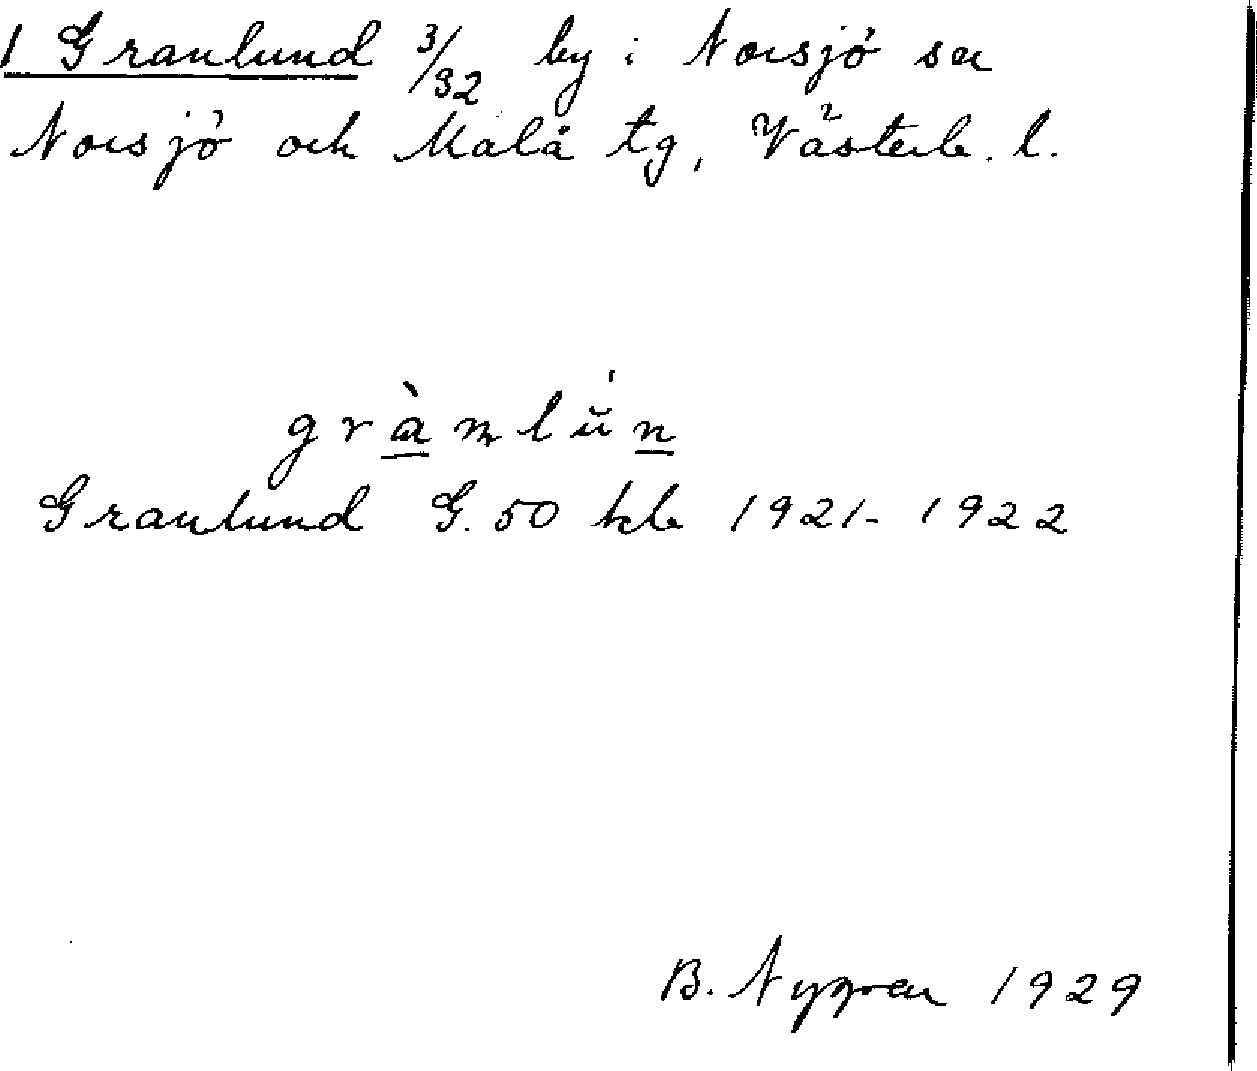 1 Granlund 3/32 by i Norsjö sn
Norsjö och Malå tg, Västerb. l.
grànlŭ́n
Granlund G. 50 kb 1921-1922
B. Nygren 1929